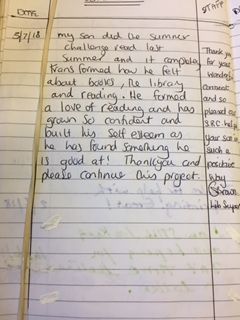 DATE
STAFF
5/7/18
my son did the summer
challenge read last
summer and it completely
transformed how he felt
about books, the library
and reading. He formed
a love of reading and has
grown so confident and
built his self esteem as
he has found something he
is good at! Thankyou and
please continue this project.
Thank you
for your
wonderful
comment
and so
pleased our
S.R.C. helped
your son in
such a
positive
way
Lib Super